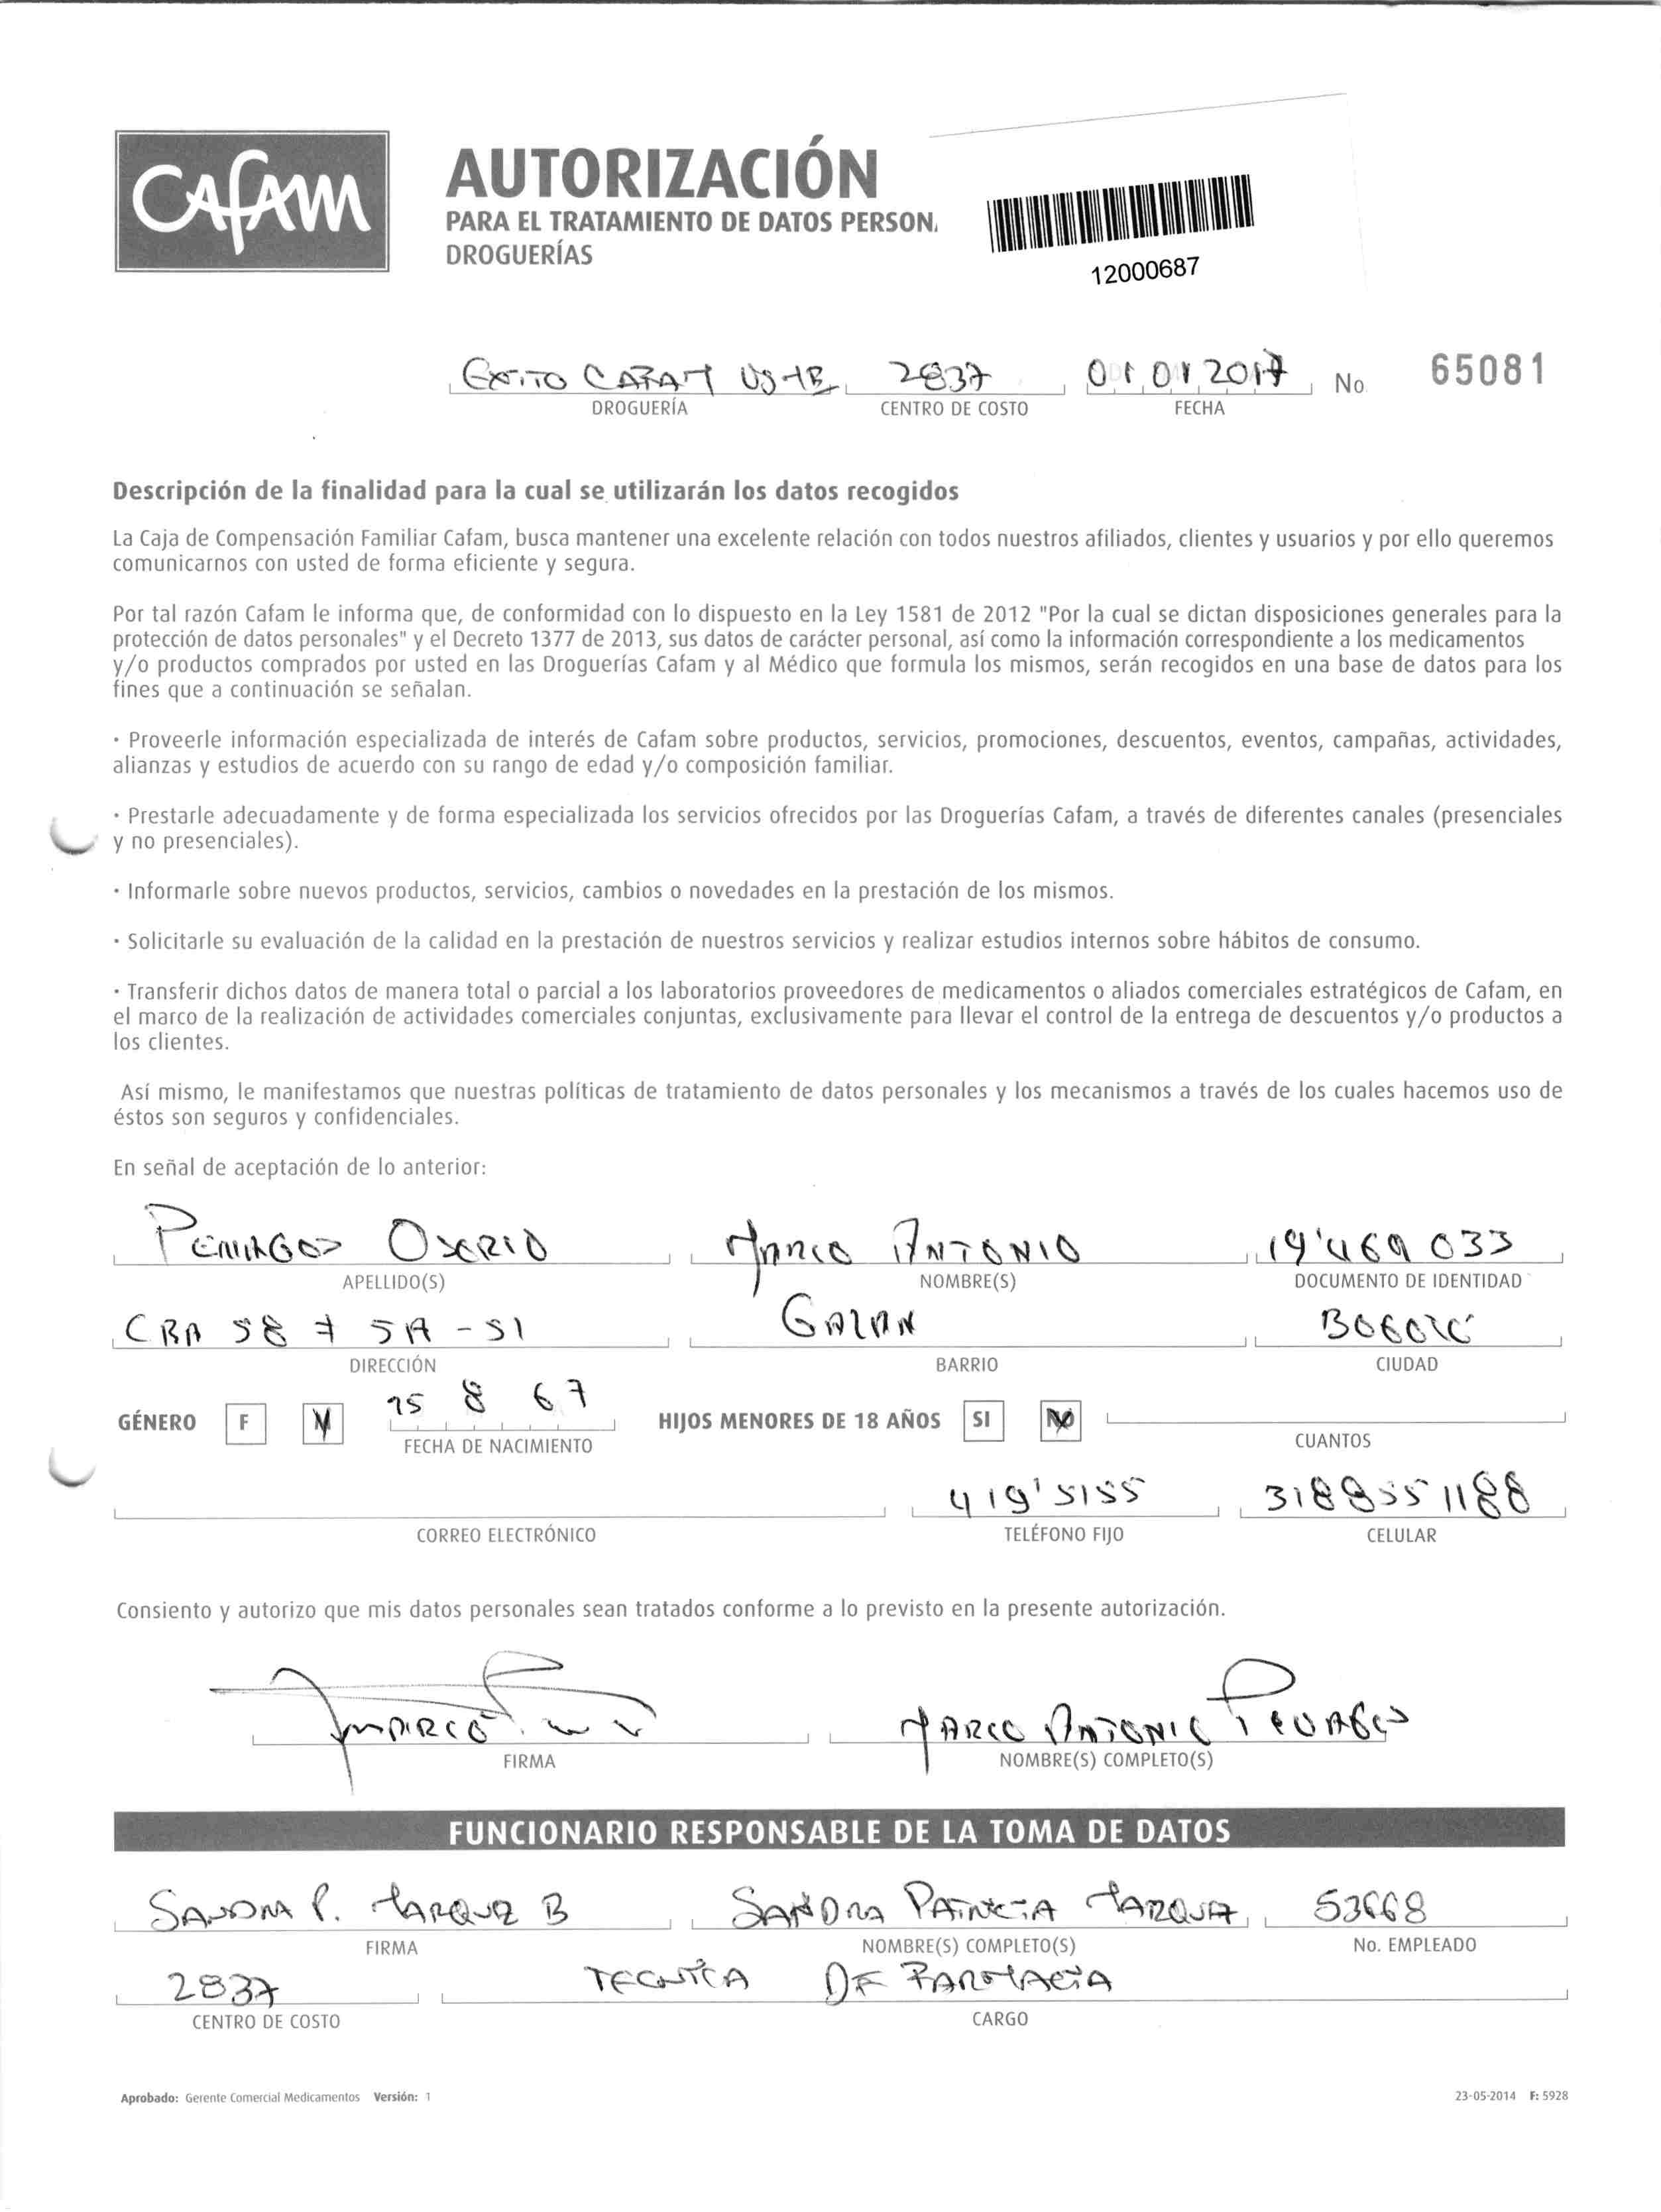 Cafam
AUTORIZACIÓN
PARA EL TRATAMIENTO DE DATOS PERSON
DROGUERÍAS
12000687
EXITO CAFAM 2837 01 01 2017 No. 65081
DROGUERÍA CENTRO DE COSTO FECHA
Descripción de la finalidad para la cual se utilizarán los datos recogidos
La Caja de Compensación Familiar Cafam, busca mantener una excelente relación con todos nuestros afiliados, clientes y usuarios y por ello queremos
comunicarnos con usted de forma eficiente y segura.
Por tal razón Cafam le informa que, de conformidad con lo dispuesto en la Ley 1581 de 2012 "Por la cual se dictan disposiciones generales para la
protección de datos personales" y el Decreto 1377 de 2013, sus datos de carácter personal, así como la información correspondiente a los medicamentos
y/o productos comprados por usted en las Droguerías Cafam y al Médico que formula los mismos, serán recogidos en una base de datos para los
fines que a continuación se señalan.
· Proveerle información especializada de interés de Cafam sobre productos, servicios, promociones, descuentos, eventos, campañas, actividades,
alianzas y estudios de acuerdo con su rango de edad y/o composición familiar.
· Prestarle adecuadamente y de forma especializada los servicios ofrecidos por las Droguerías Cafam, a través de diferentes canales (presenciales
y no presenciales).
· Informarle sobre nuevos productos, servicios, cambios o novedades en la prestación de los mismos.
· Solicitarle su evaluación de la calidad en la prestación de nuestros servicios y realizar estudios internos sobre hábitos de consumo.
· Transferir dichos datos de manera total o parcial a los laboratorios proveedores de medicamentos o aliados comerciales estratégicos de Cafam, en
el marco de la realización de actividades comerciales conjuntas, exclusivamente para llevar el control de la entrega de descuentos y/o productos a
los clientes.
Así mismo, le manifestamos que nuestras políticas de tratamiento de datos personales y los mecanismos a través de los cuales hacemos uso de
éstos son seguros y confidenciales.
En señal de aceptación de lo anterior:
PEMAGOS OSORIO MARCO ANTONIO 19'469 033
APELLIDO(S) NOMBRE(S) DOCUMENTO DE IDENTIDAD
CRA 58 # 5A - 51 GALAN BOGOTÁ
DIRECCIÓN BARRIO CIUDAD
GÉNERO F M 15 8 67 HIJOS MENORES DE 18 AÑOS SI NO
FECHA DE NACIMIENTO CUANTOS
419'5155 3188551188
CORREO ELECTRÓNICO TELÉFONO FIJO CELULAR
Consiento y autorizo que mis datos personales sean tratados conforme a lo previsto en la presente autorización.
MARCO MARCO ANTONIO
FIRMA NOMBRE(S) COMPLETO(S)
FUNCIONARIO RESPONSABLE DE LA TOMA DE DATOS
SANDRA P. MARQUEZ B SANDRA PATRICIA MARQUEZ 53668
FIRMA NOMBRE(S) COMPLETO(S) No. EMPLEADO
2837 TECNICA DE FARMACIA
CENTRO DE COSTO CARGO
Aprobado: Gerente Comercial Medicamentos Versión: 1 23-05-2014 F: 5928